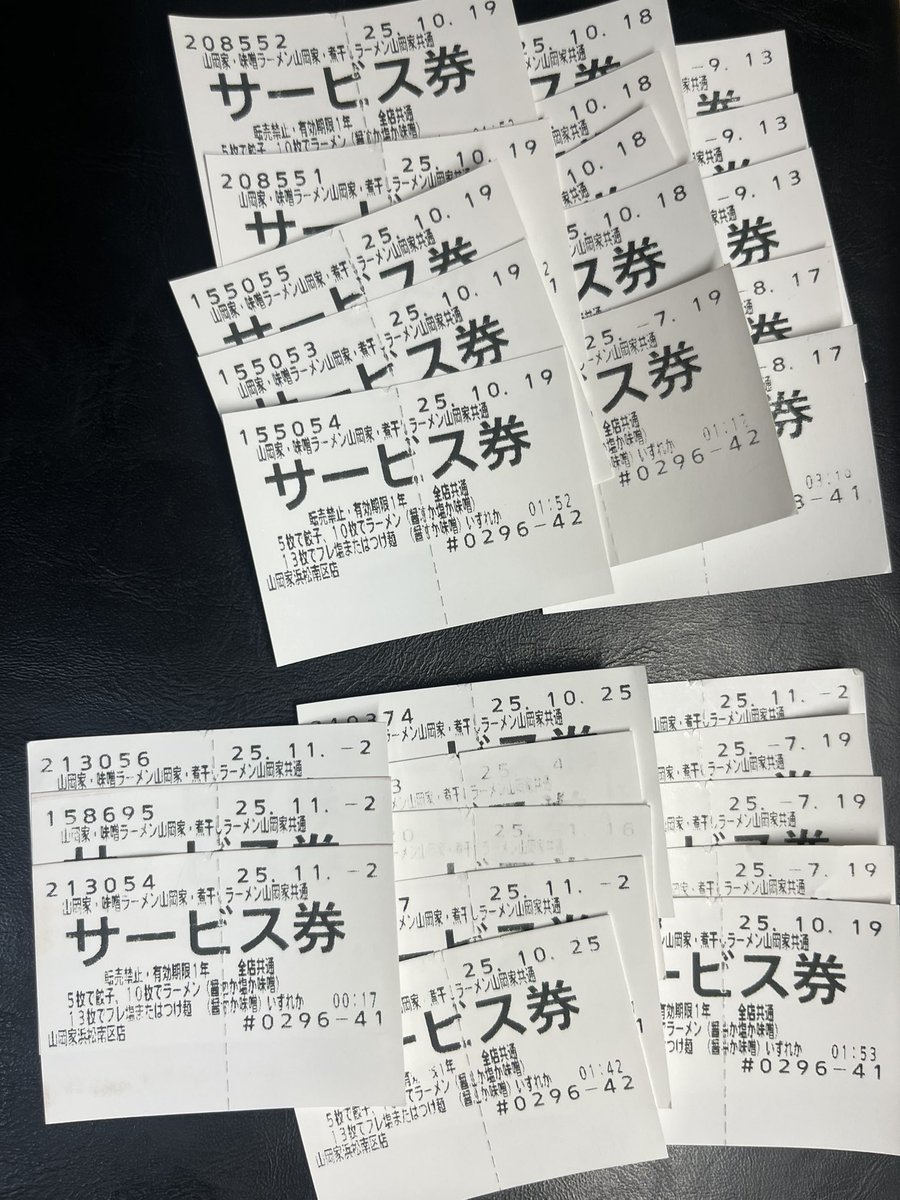 208552 25.10.19
山岡家・味噌ラーメン山岡家・煮干しラーメン山岡家共通
サービス券
転売禁止・有効期限1年 全店共通
208551 25.10.19
山岡家・味噌ラーメン山岡家・煮干しラーメン山岡家共通
155055 25.10.19
山岡家・味噌ラーメン山岡家・煮干しラーメン山岡家共通
サービス券
155053 25.10.19
山岡家・味噌ラーメン山岡家・煮干しラーメン山岡家共通
サービス券
155054 25.10.19
山岡家・味噌ラーメン山岡家・煮干しラーメン山岡家共通
サービス券
転売禁止・有効期限1年 全店共通
5枚で餃子、10枚でラーメン（醤すか塩か味噌）
13枚でプレ塩またはつけ麺（醤すか味噌）いずれか 01:52
山岡家浜松南区店 #0296-42
25.10.18
ラーメン山岡家共通
ス券
10.18
10.18
25.10.18
ラーメン山岡家共通
ス券
25.-7.19
ラーメン山岡家共通
ス券
全店共通
か味噌）いずれか
#0296-42
-9.13
家共通
券
-9.13
家共通
-9.13
家共通
券
-8.17
-8.17
券
-41
213056 25.11.-2
山岡家・味噌ラーメン山岡家・煮干しラーメン山岡家共通
158695 25.11.-2
山岡家・味噌ラーメン山岡家・煮干しラーメン山岡家共通
213054 25.11.-2
山岡家・味噌ラーメン山岡家・煮干しラーメン山岡家共通
サービス券
転売禁止・有効期限1年 全店共通
5枚で餃子、10枚でラーメン（醤か塩か味噌）
13枚でプレ塩またはつけ麺（醤すか味噌）いずれか 00:17
山岡家浜松南区店 #0296-41
25.10.25
ラーメン山岡家・煮干しラーメン山岡家共通
25.11.-2
メン山岡家・煮干しラーメン山岡家共通
25.10.25
煮干しラーメン山岡家共通
ービス券
全店共通
5枚で餃子、10枚でラーメン（醤か塩か味噌）
13枚でプレ塩またはつけ麺（醤すか味噌）いずれか 01:42
山岡家浜松南区店 #0296-42
25.11.-2
家・煮干しラーメン山岡家共通
25.-7.19
家・煮干しラーメン山岡家共通
25.-7.19
家・煮干しラーメン山岡家共通
ビス券
25.-7.19
煮干しラーメン山岡家共通
25.10.19
煮干しラーメン山岡家共通
ービス券
有効期限1年 全店共通
ラーメン（醤か塩か味噌）
つけ麺（醤か味噌）いずれか 01:53
#0296-41